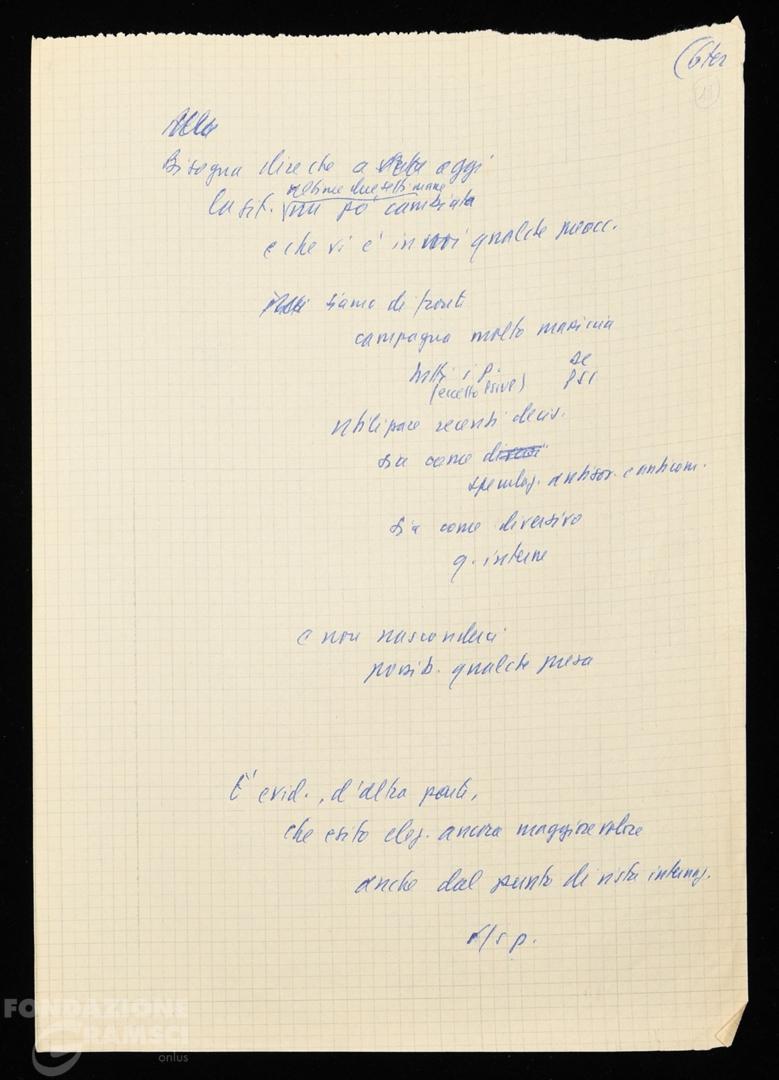 (6ter
Bisogna dire che a oggi
ultime due settimane
la sit. un po' cambiata
e che vi è in noi qualche preocc.
siamo di fronte
campagna molto massiccia
tutti i p. DC
(eccetto PSIUP) PSI
utilizzare recenti decis.
sia come
speculaz. antisov. e anticom.
sia come diversivo
q. interne
e non nasconderci
possib. qualche presa
È evid., d'altra parte,
che esito elez. ancora maggiore valore
anche dal punto di vista internaz.
FONDAZIONE
GRAMSCI
onlus